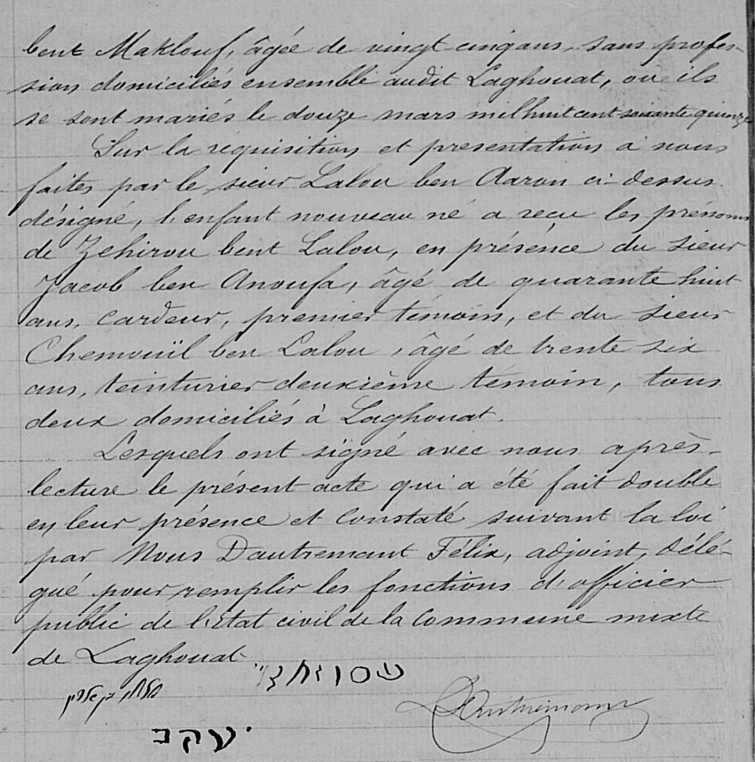 bent Maklouf, âgée de vingt cinq ans, sans profes-
sion domiciliés ensemble audit Laghouat, ou ils
se sont mariés le douze mars mil huit cent soixante quinze
Sur la requisition et presentation à nous
faites par le sieur Lalou ben Aaron ci-dessus
désigné, l'enfant nouveau né a recu les prénoms
de Zehirou bent Lalou, en présence du sieur
Jacob ben Anoufa, âgé de quarante huit
ans, cardeur, premier témoin, et du sieur
Chemouïl ben Lalou, âgé de trente six
ans, teinturier deuxième témoin, tous
deux domiciliés à Laghouat.
Lesquels ont signé avec nous après
lecture le présent acte qui a été fait double
en leur présence et constaté suivant la loi
par Nous Dautremant Félix, adjoint, délé-
gué pour remplir les fonctions d'officier
public de l'Etat civil de la Commune mixte
de Laghouat
יעקב